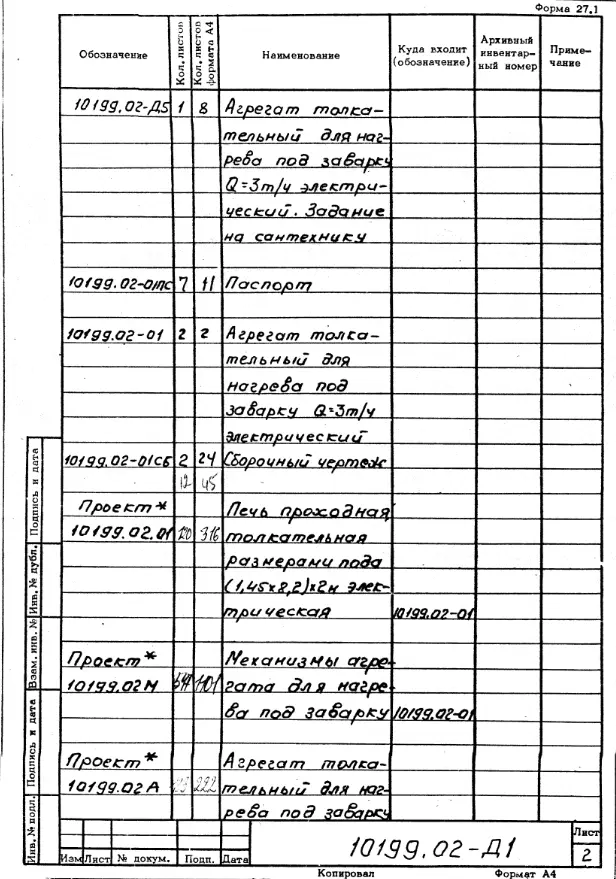 Форма 27.1
Обозначение Кол. листов Кол. листов формата А4 Наименование Куда входит (обозначение) Архивный инвентарный номер Примечание
10199.02-Д5 1 8 Агрегат толка-
тельный для наг-
рева под заварку
Q=3т/ч электри-
ческий. Задание
на сантехнику
10199.02-01ПС 7 11 Паспорт
10199.02-01 2 2 Агрегат толка-
тельный для
нагрева под
заварку Q=3т/ч
электрический
10199.02-01СБ 2 24 Сборочный чертеж
12 45
Проект* Печь проходная
10199.02.01 120 316 толкательная
размерами пода
(1,45х8,2)х2м элек-
трическая 10199.02-01
Проект* Механизмы агре-
10199.02М 1101 гата для нагре-
ва под заварку 10199.02-01
Проект* Агрегат толка-
10199.02А 222 тельный для наг-
рева под заварку
Подпись и дата
Инв. № дубл.
Взам. инв. №
Подпись и дата
Инв. № подл.
10199.02-Д1 Лист 2
Изм Лист № докум. Подп. Дата
Копировал Формат А4